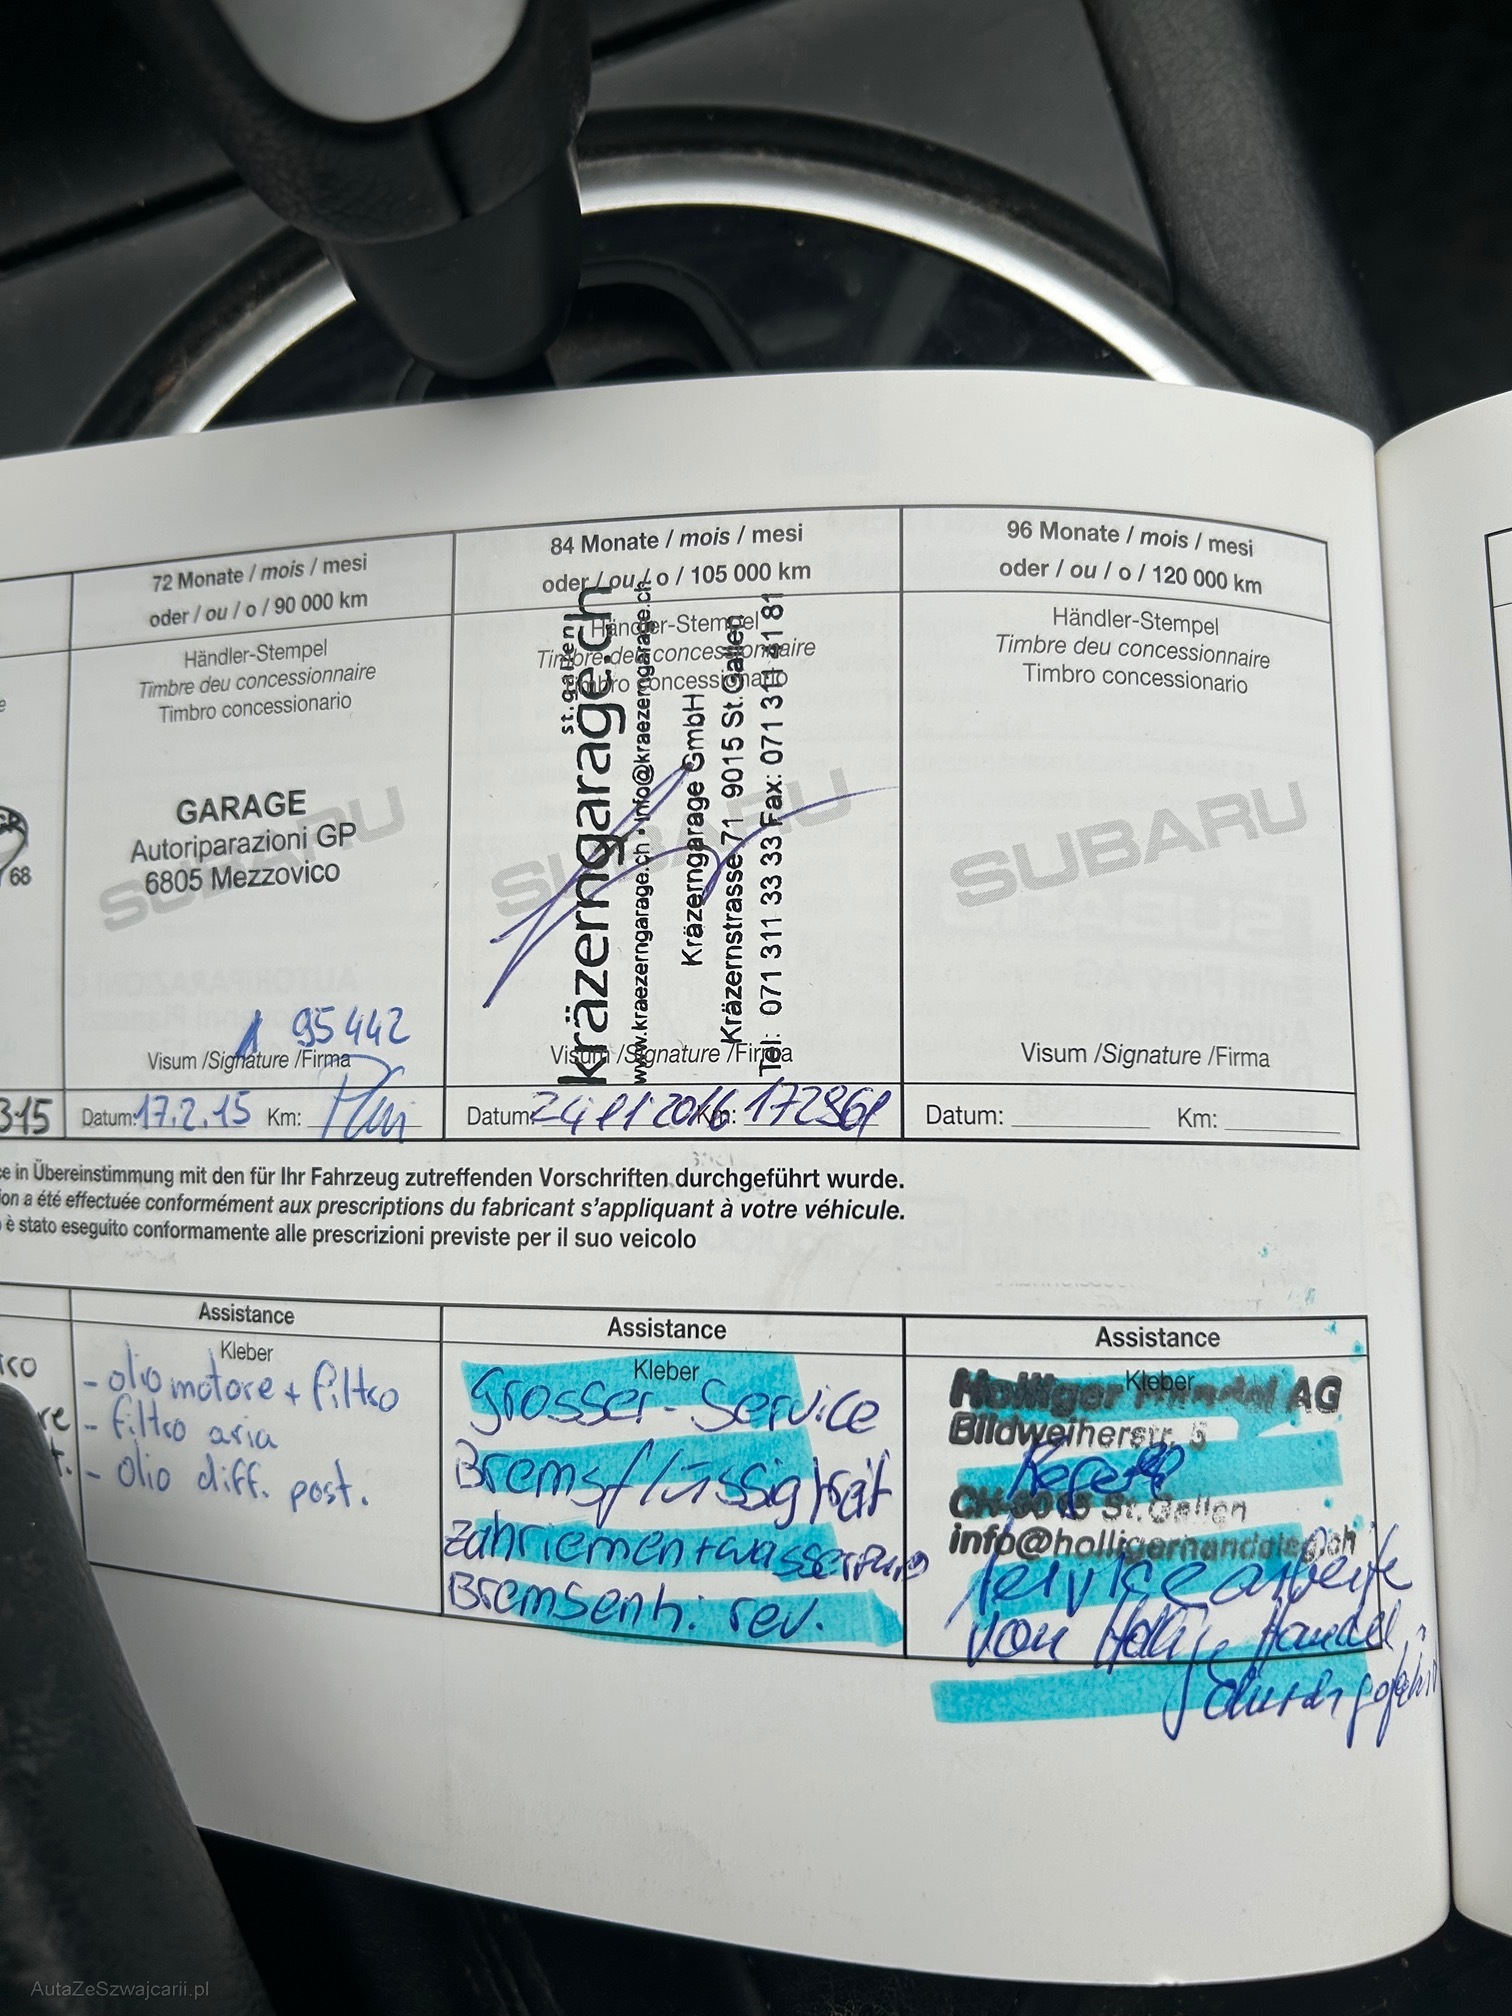 72 Monate / mois / mesi
oder / ou / o / 90 000 km
Händler-Stempel
Timbre deu concessionnaire
Timbro concessionario
SUBARU
GARAGE
Autoriparazioni GP
6805 Mezzovico
95442
Visum /Signature /Firma
Datum: 17.2.15 Km:
84 Monate / mois / mesi
oder / ou / o / 105 000 km
Händler-Stempel
Timbre deu concessionnaire
Timbro concessionario
SUBARU
st.gallen
kräzerngarage.ch
www.kraezerngarage.ch • info@kraezerngarage.ch
Kräzerngarage GmbH
Kräzernstrasse 71 9015 St.Gallen
Tel: 071 311 33 33 Fax: 071 311 41 81
Visum /Signature /Firma
Datum: 2016 Km:
96 Monate / mois / mesi
oder / ou / o / 120 000 km
Händler-Stempel
Timbre deu concessionnaire
Timbro concessionario
SUBARU
Visum /Signature /Firma
Datum: Km:
68
315
e in Übereinstimmung mit den für Ihr Fahrzeug zutreffenden Vorschriften durchgeführt wurde.
ion a été effectuée conformément aux prescriptions du fabricant s'appliquant à votre véhicule.
è stato eseguito conformamente alle prescrizioni previste per il suo veicolo
Assistance
Kleber
- olio motore + filtro
- filtro aria
- olio diff. post.
Assistance
Kleber
Grosser-Service
Bremsflüssigkeit
Zahriemen+wasserpum
Bremsenh. rev.
Assistance
Kleber
Holliger Handel AG
Bildweiherstr. 5
CH-9015 St.Gallen
info@holligerhandelag.ch
Service arbeite
von Handel
AutaZeSzwajcarii.pl